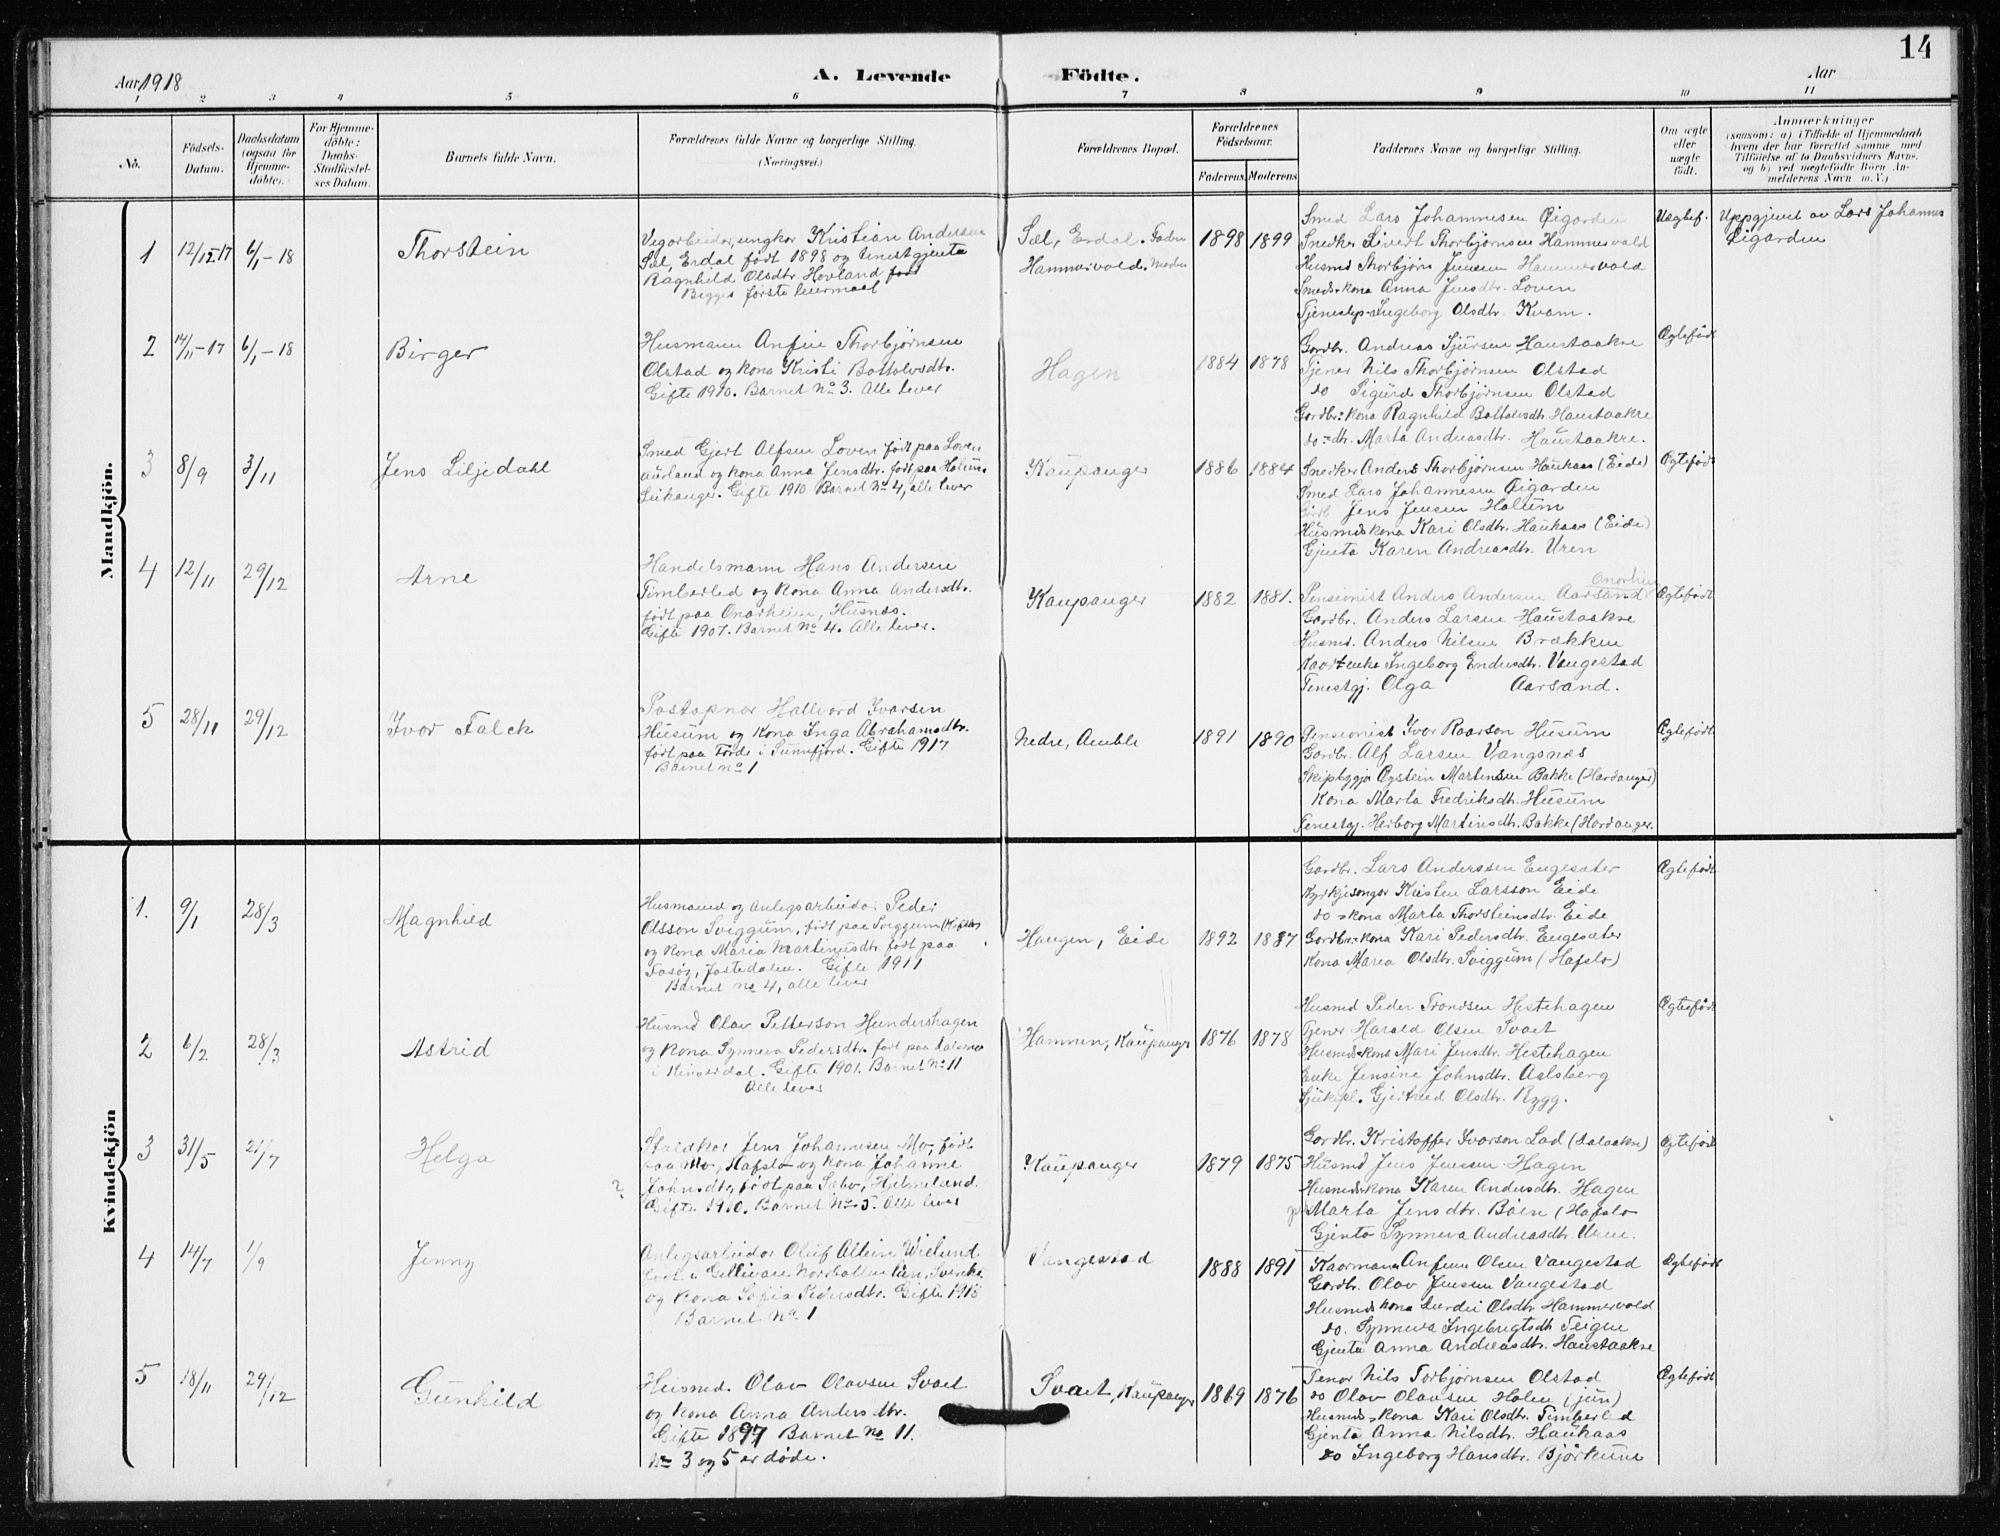 14
Aar 1918
A. Levende Födte.
Aar
1 2 3 4 5 6 7 8 9 10 11
No.
Födsels-Datum.
Daabsdatum (ogsaa for Hjemme-döbte).
For Hjemme-döbte: Daabs-Stadfæstel-ses Datum.
Barnets fulde Navn.
Forældrenes fulde Navne og borgerlige Stilling. (Næringsvei.)
Forældrenes Bopæl.
Forældrenes Födselsaar.
Faderens. Moderens
Faddernes Navne og borgerlige Stilling.
Om ægte eller uægte födt.
Anmærkninger
(saasom: a) i Tilfælde af Hjemmedaab
hvem der har forrettet samme med
Tilföielse af to Daabsvidners Navne,
og b) ved uægtefödte Börn An-
melderens Navn m.V.)
Mandkjön.
1 12/12-17 6/1-18 Thorstein
Vegarbeider, ungkar Kristian Andersen
Sæl, Erdal født 1898 og tenestgjenta
Ragnhild Olsdtr Hovland født
Begges første leiermaal
Sæl, Erdal. Faderen
Hammervold. Moderen
1898 1899
Smed Lars Johannesen Øigarden
Snedker Sivert Thorbjørnsen Hammervold
Husmd Thorbjørn Jensen Hammervold
Smeds-kona Anna Jensdtr. Loven
Tjenestep. Ingeborg Olsdtr. Kvam.
Uægtef.
Uppgjevet av Lars Johannes
Øigarden
2 14/11-17 6/1-18 Birger
Husmann Anfin Thorbjørnsen
Olstad og kona Kristi Bottolvsdtr.
Gifte 1910. Barnet No 3. Alle lever
Hagen
1884 1878
Gardbr. Andreas Sjursen Haustaakre
Tjener Nils Thorbjørnsen Olstad
do Sigurd Thorbjørnsen Olstad
Gardbr.-kona Ragnhild Bottolvsdtr Haustaakre
do-dtr. Marta Andreasdtr. Haustaakre.
Ægtefødt
3 8/9 3/11 Jens Liljedahl
Smed Gjert Alfsen Loven født paa Loven
Aurland og kona Anna Jensdtr. født paa Holum
Leikanger. Gifte 1910 Barnet No 4, alle lever
Kaupanger
1886 1884
Snedker Anders Thorbjørnsen Haukaas (Eide)
Smed Lars Johannesen Øigarden
Jens Jensen Holum
Husmdskona Kari Olsdtr. Haukaas (Eide)
Gjenta Karen Andreasdtr. Uren
Ægtefødt
4 12/11 29/12 Arne
Handelsmann Hans Andersen
Timberlid og kona Anna Andersdtr.
født paa Onarheim, Husnæs.
Gifte 1907. Barnet No 4. Alle lever.
Kaupanger
1882 1881.
Onarheim
Pensionist Anders Andersen Aarsand
Gardbr. Anders Larsen Haustaakre
Husmd. Anders Nilsen Brækken
Kaarenke Ingeborg Endresdtr. Vangestad
Tenestgj. Olga Aarsand.
Ægtefødt
5 28/11 29/12 Ivar Falck
Postopnar Hallvard Ivarsen
Husum og kona Inga Abrahamsdtr.
født paa Førde i Sunnfjord. Gifte 1917
Barnet no 1
Nedre, Amble
1891 1890
Pensionist Ivar Roarson Husum
Gardbr. Alf Larsen Vangsnæs
Skipbyggja Øystein Martinsen Bakke (Hardanger)
Kona Marta Fredriksdtr. Husum
Tenestgj. Herborg Martinsdtr. Bakke (Hardanger.
Ægtefødt
Kvindekjön
1. 9/1 28/3 Magnhild
Husmand og Anlegsarbeider Peder
Olsson Sviggum, født paa Sviggum (Hafslo)
og kona Maria Martinusdtr født paa
Fosøy, Jostedalen. Gifte 1911
Barnet no 4, alle lever
Haugen, Eide
1892 1887
Gardbr. Lars Anderssen Engesæter
Kyrkjesongar Kristen Larsson Eide
do-kona Marta Thorsteinsdtr. Eide
Gardbr-kona Kari Pedersdtr. Engesæter
Kona Maria Olsdtr. Sviggum (Hafslo)
Ægtefødt
2 6/2 28/3 Astrid
Husmd Olav Petterson Hundershagen
og kona Synneva Pedersdtr. født paa
i Kinserdal. Gifte 1901. Barnet No 11
Alle lever
Hammen, Kaupanger
1876 1878
Husmd Peder Trondsen Hestehagen
Tjener Harald Olsen Svaet
Husmdskona Mari Jensdtr. Hestehagen
Enke Jensine Johnsdtr. Aalsberg
Sjukepl. Gjertrud Olsdtr. Rygg.
Ægtefødt
3 31/5 21/7 Helga
Jens Johannesen Mo, født
paa Mo, Hafslo og kona Johanne
Johnsdtr, født paa Sæbø, Hilmeland.
Gifte 1910. Barnet No 5. Alle lever
?
Kaupanger
1879 1875
Gardbr. Kristoffer Ivarson Lad (Dalaakre)
Husmd Jens Jensen Hagen
Husmdskona Karen Andersdtr. Hagen
Marta Jensdtr. Bøen (Hafslo
Gjenta Synneva Andreasdtr Uren.
Ægtefødt
4 14/7 1/9 Jenny
Anlegsarbeidar Oluf Albin Wiklund
født i Gellivare Norbotten Län, Sverike
og kona Sofia Pedersdtr. Gifte 1918
Barnet No 1
Vangestad
1888 1891
Kaarmann Anfinn Olsen Vangestad
Gardbr. Olav Jensen Vangestad
Husmdskona Durdei Olsdtr Hammervold
do. Synneva Ingebrigtsdtr Teigen
Gjenta Anna Andreasdtr. Haustaakre
Ægtefødt
5 18/11 29/12 Gunhild
Husmd. Olav Olavsen Svaet
og kona Anna Andersdtr.
Gifte 1897 Barnet No 11.
No 3 og 5 er døde.
Svaet, Kaupanger
1869 1876
Tenar Nils Torbjørnsen Olstad
do Olav Olavsen Holen (jun)
Husmds-kona Kari Olsdtr. Timberlid
Gjenta Anna Nilsdtr. Haukaas
do Ingeborg Hansdtr. Bjørkum
Ægtefødt